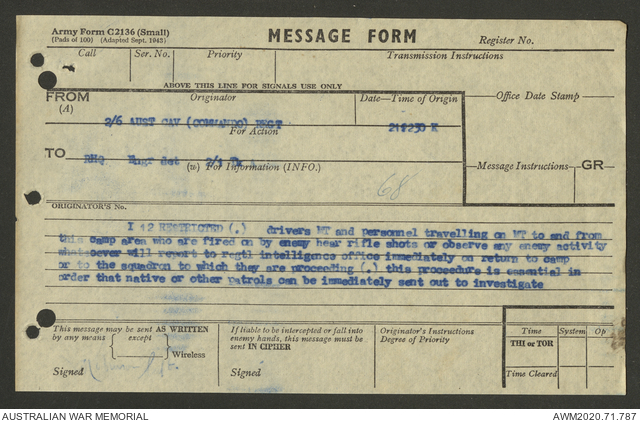 Army Form C2136 (Small)
(Pads of 100) (Adapted Sept. 1943)
MESSAGE FORM
Register No.
Call
Ser. No.
Priority
Transmission Instructions
ABOVE THIS LINE FOR SIGNALS USE ONLY
FROM
(A)
Originator
Date—Time of Origin
Office Date Stamp
2/6 AUST CAV (COMMANDO) REGT
For Action
TO
RHQ Engr det 2/3
(w) For Information (INFO.)
Message Instructions
GR
68
ORIGINATOR'S No.
I 12 RESTRICTED (.) drivers MT and personnel travelling on MT to and from
this camp area who are fired on by enemy hear rifle shots or observe any enemy activity
whatsoever will report to regtl intelligence office immediately on return to camp
or to the squadron to which they are proceeding (.) this procedure is essential in
order that native or other patrols can be immediately sent out to investigate
This message may be sent AS WRITTEN
by any means except
Wireless
Signed
If liable to be intercepted or fall into
enemy hands, this message must be
sent IN CIPHER
Signed
Originator's Instructions
Degree of Priority
Time System Op
THI or TOR
Time Cleared
AUSTRALIAN WAR MEMORIAL
AWM2020.71.787